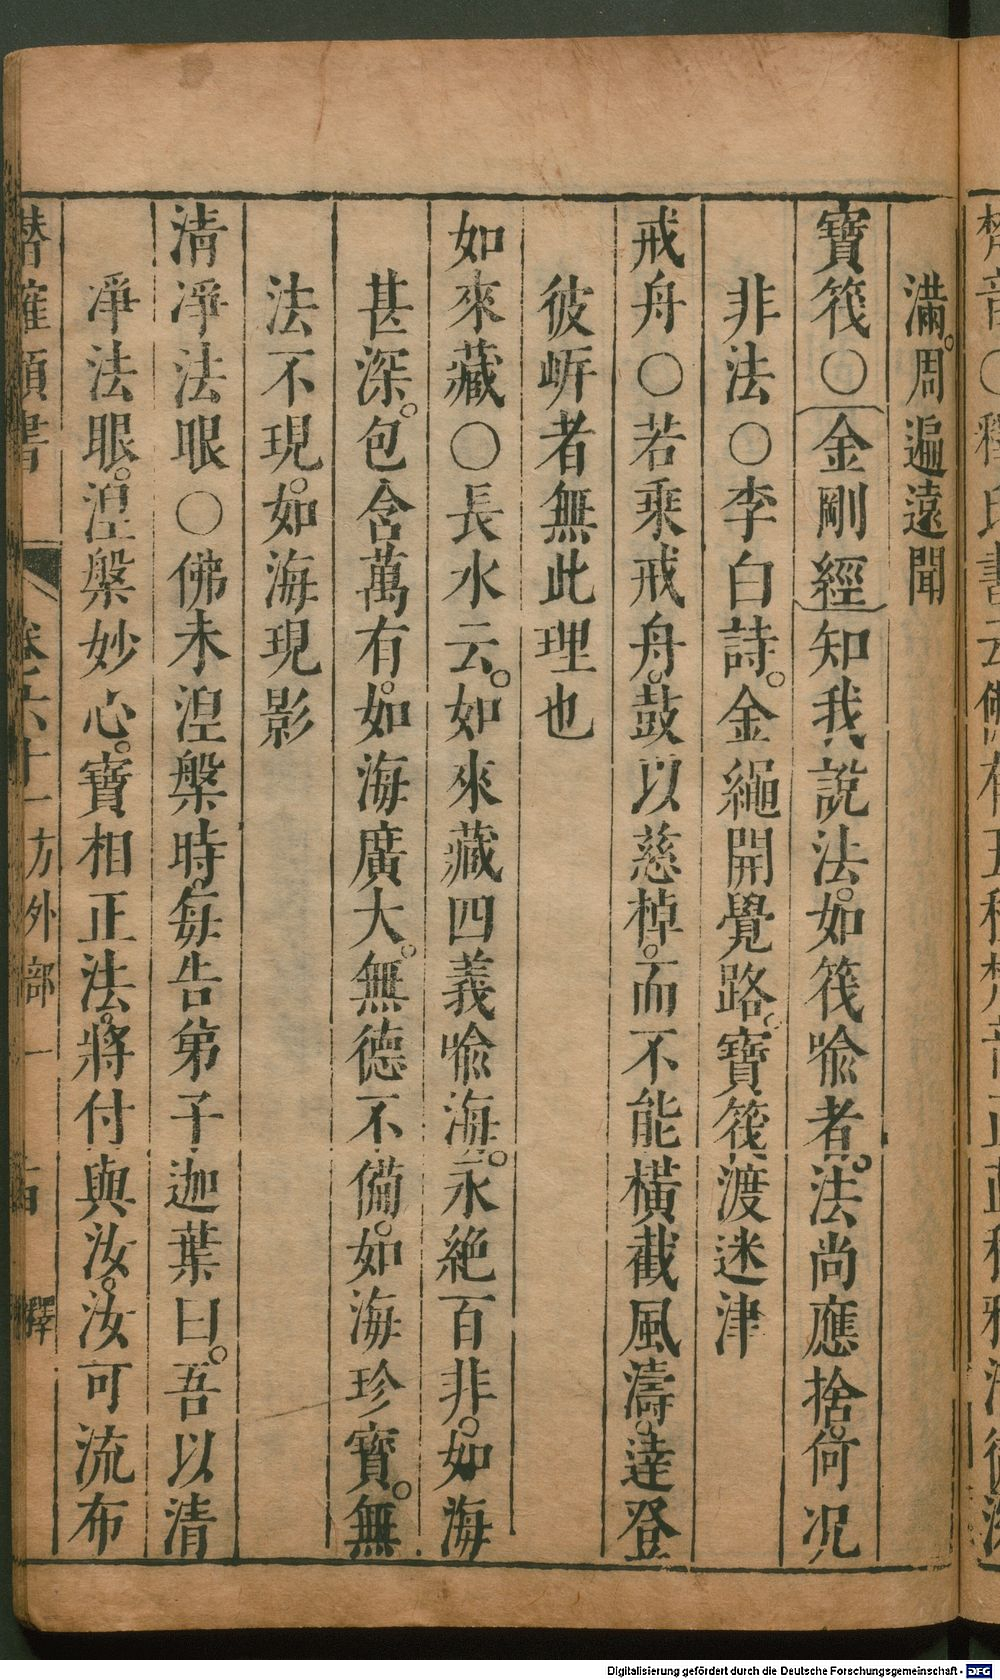 滿。周遍遠聞
寶筏○金剛經知我說法。如筏喩者。法尚應捨。何况
非法○李白詩。金繩開覺路。寶筏渡迷津
戒舟○若乘戒舟。鼓以慈棹。而不能橫截風濤。逹登
彼㟁者無此理也
如來藏○長水云。如來藏四義喩海。一永絕百非。如海
甚深。包含萬有。如海廣大。無德不備。如海珍寶。無
法不現。如海現影
清淨法眼○佛未涅槃時。每告弟子迦葉曰。吾以清
淨法眼。涅槃妙心。寶相正法。將付與汝。汝可流布
潛確類書 卷六十一方外部一 釋
Digitalisierung gefördert durch die Deutsche Forschungsgemeinschaft - DFG